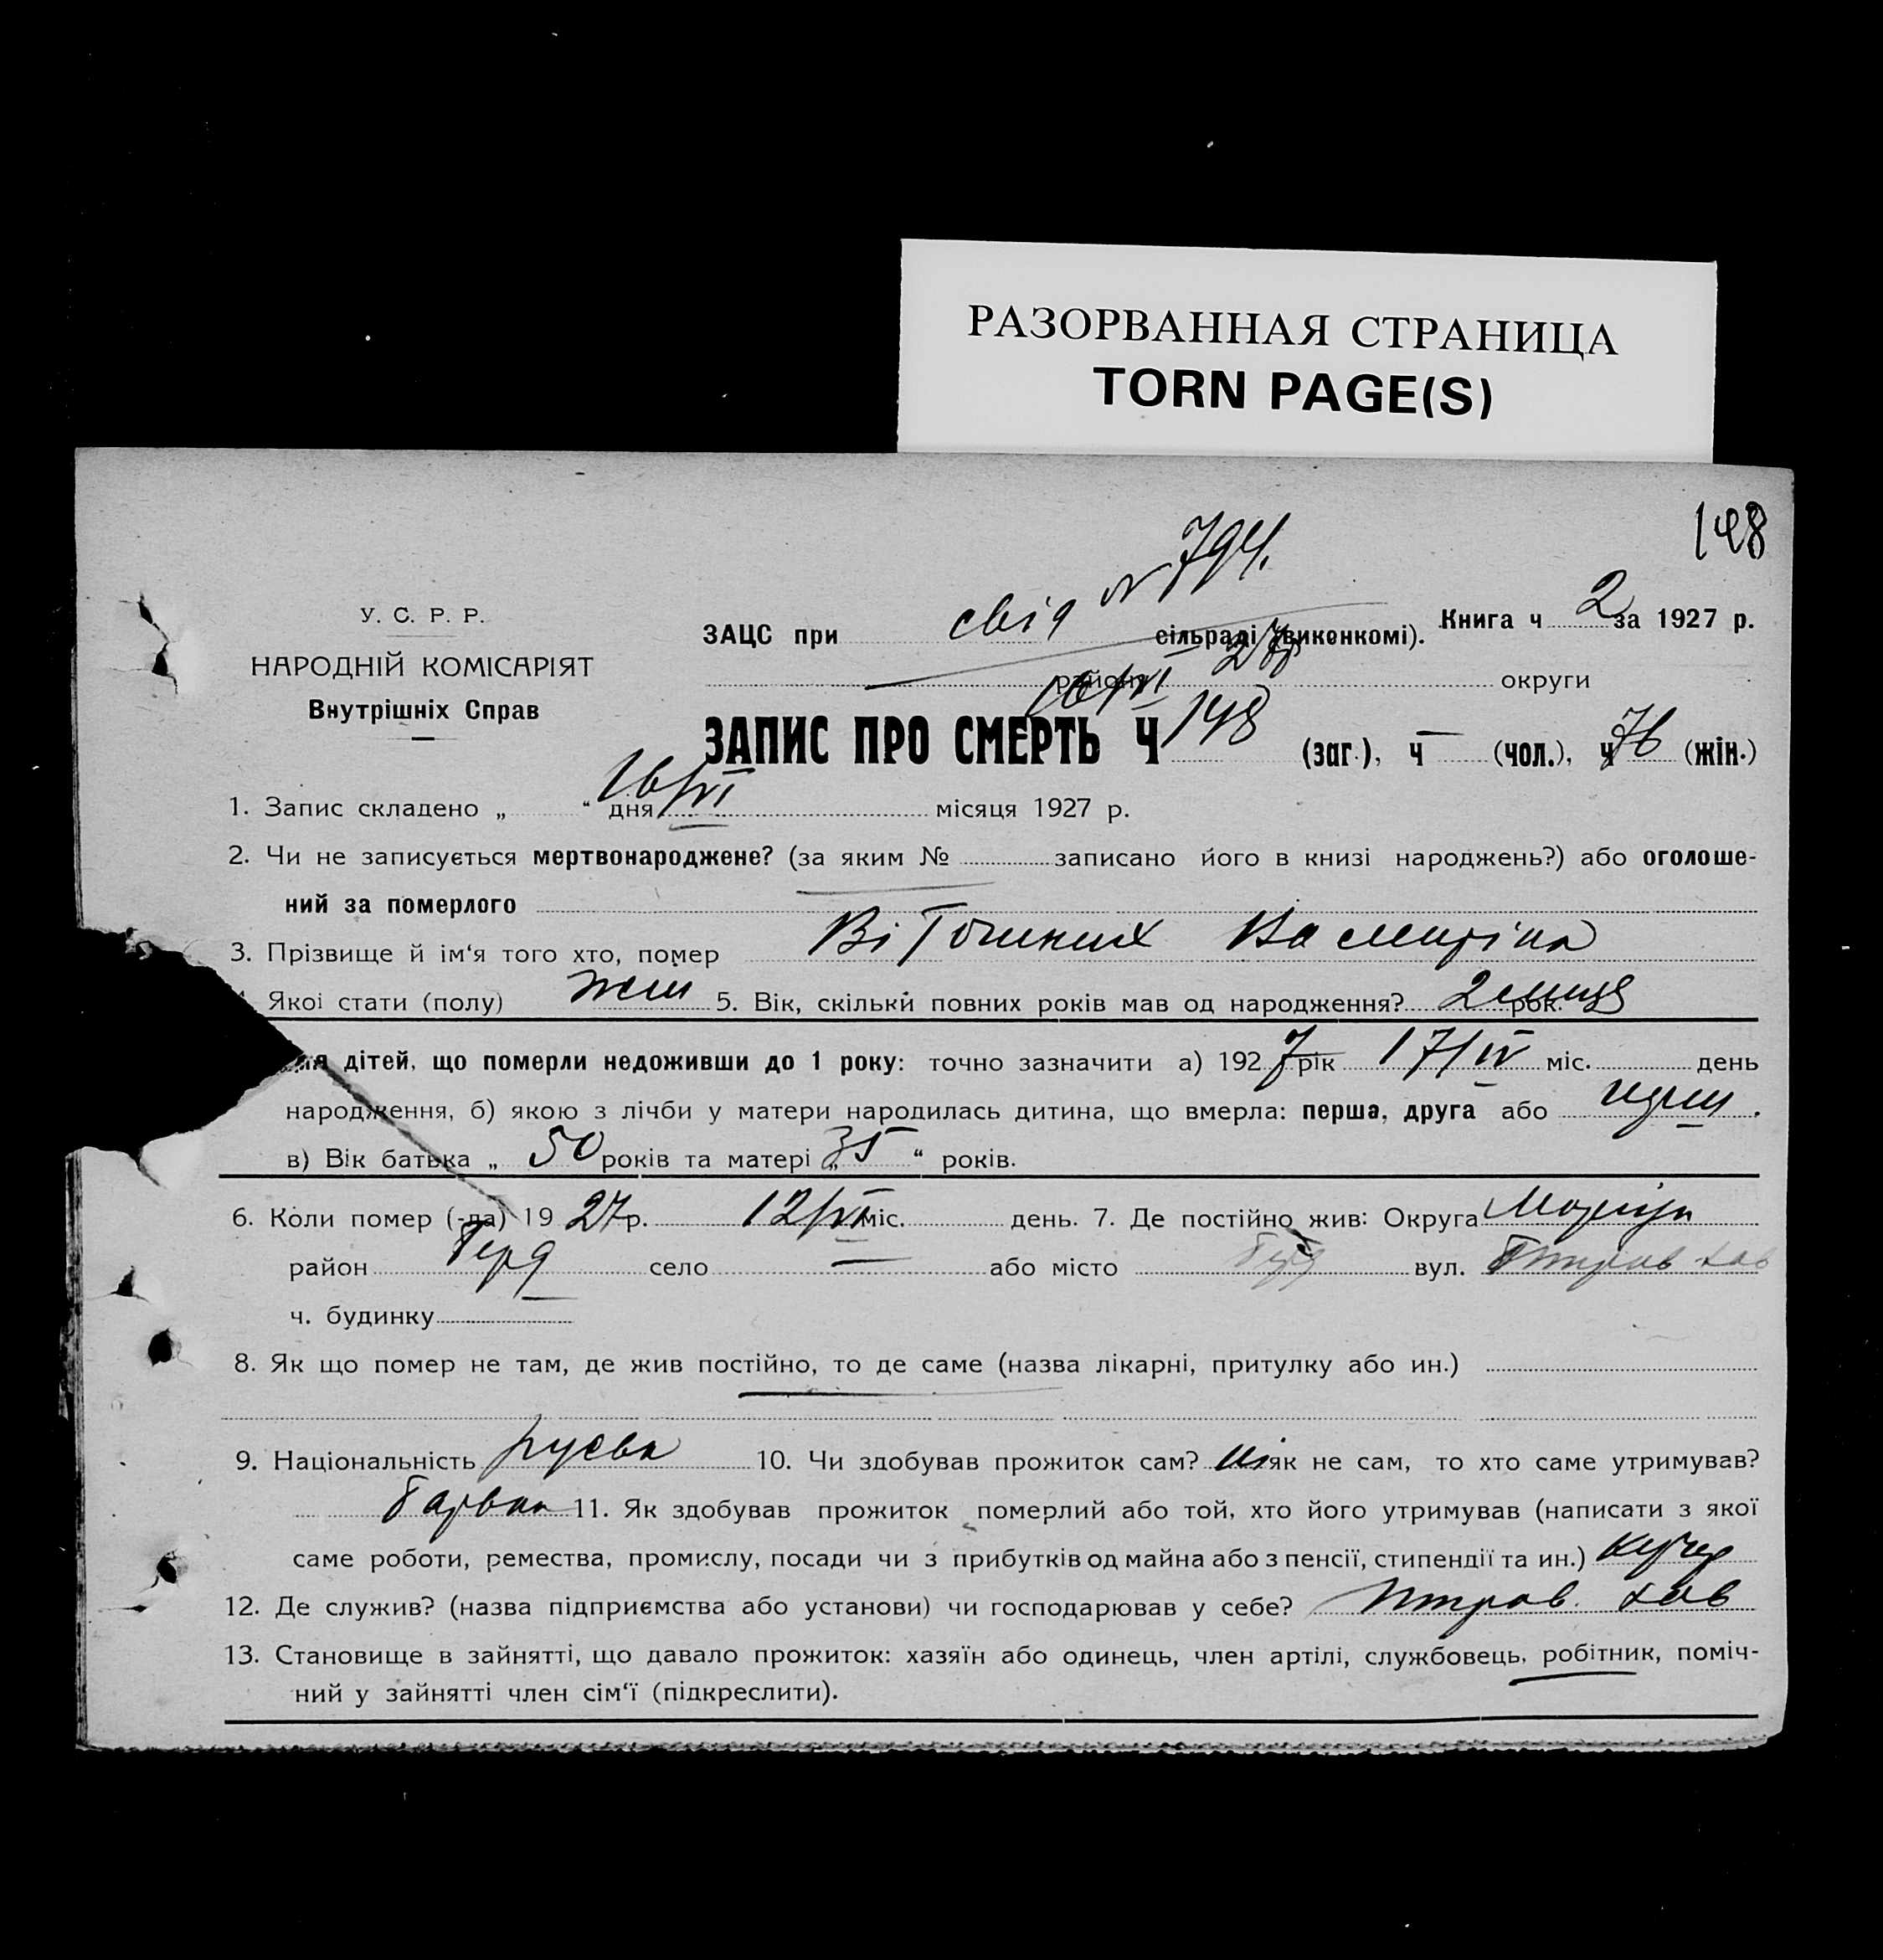 РАЗОРВАННАЯ СТРАНИЦА
TORN PAGE(S)
148
№ 794.
У. С. Р. Р.
НАРОДНІЙ КОМІСАРІЯТ
Внутрішніх Справ
ЗАЦС при свід сільраді (виконкомі). Книга ч 2 за 1927 р.
району 16/VI 27р округи
ЗАПИС ПРО СМЕРТЬ Ч 148 (заг.), ч — (чол.), ч 76 (жін.)
1. Запис складено „ “ дня 16/VI місяця 1927 р.
2. Чи не записується мертвонароджене? (за яким № записано його в книзі народжень?) або оголоше-
ний за померлого —
3. Прізвище й ім‘я того хто, помер
Якоі стати (полу) жін 5. Вік, скільки повних років мав од народження? 2 рок.
дітей, що померли недоживши до 1 року: точно зазначити а) 1927 рік 17/IV міс. день
народження, б) якою з лічби у матери народилась дитина, що вмерла: перша, друга або
в) Вік батька „ 50 років та матері „ 35 “ років.
6. Коли помер (-ла) 1927 р. 12/VI міс. день. 7. Де постійно жив: Округа
район село — або місто вул.
ч. будинку
8. Як що помер не там, де жив постійно, то де саме (назва лікарні, притулку або ин.)
9. Національність 10. Чи здобував прожиток сам? ні як не сам, то хто саме утримував?
11. Як здобував прожиток померлий або той, хто його утримував (написати з якої
саме роботи, ремества, промислу, посади чи з прибутків од майна або з пенсії, стипендії та ин.) кучер
12. Де служив? (назва підприємства або установи) чи господарював у себе?
13. Становище в зайнятті, що давало прожиток: хазяїн або одинець, член артілі, службовець, робітник, поміч-
ний у зайнятті член сім‘ї (підкреслити).